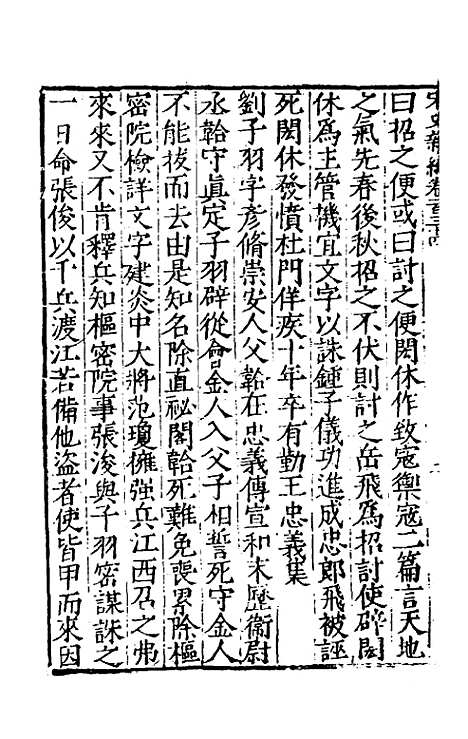 宋史新編卷一百三十四
曰招之便或曰討之便閎休作致寇禦寇二篇言天地
之氣先春後秋招之不伏則討之岳飛爲招討使辟閎
休爲主管機宜文字以誅鍾子儀功進成忠郎飛被誣
死閎休發憤杜門佯疾十年卒有勤王忠義集
劉子羽字彥脩崇安人父韐在忠義傳宣和末歷衞尉
丞韐守眞定子羽辟從會金人入父子相誓死守金人
不能拔而去由是知名除直祕閣韐死難免喪累除樞
密院檢詳文字建炎中大將范瓊擁强兵江西召之弗
來來又不肯釋兵知樞密院事張浚與子羽密謀誅之
一日命張俊以千兵渡江若備他盜者使皆甲而來因